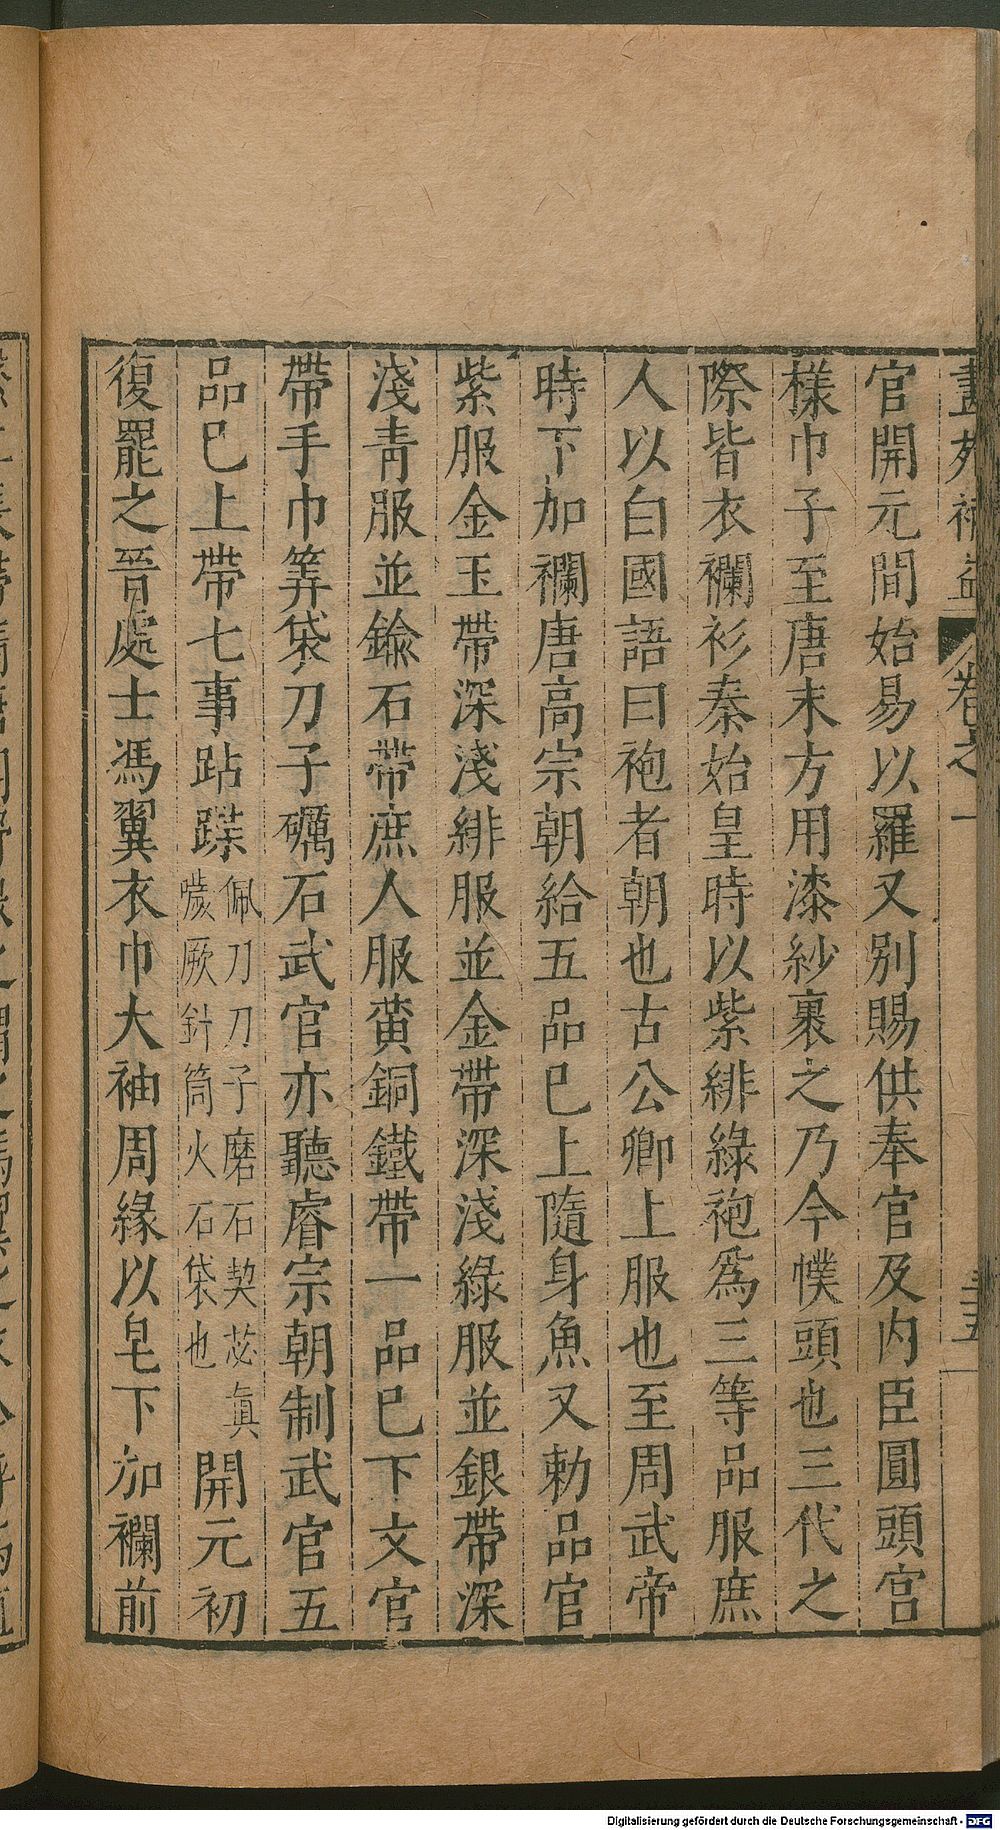 畫苑補益 卷之一 三五
官開元間始易以羅又别賜供奉官及内臣圓頭宫
樣巾子至唐末方用漆紗裹之乃今幞頭也三代之
際皆衣襴衫秦始皇時以紫緋綠袍爲三等品服庶
人以白國語曰袍者朝也古公卿上服也至周武帝
時下加襴唐高宗朝給五品巳上隨身魚又勑品官
紫服金玉帶深淺緋服並金帶深淺綠服並銀帶深
淺靑服並鍮石帶庶人服黄銅鐵帶一品巳下文官
帶手巾筭袋刀子礪石武官亦聽睿宗朝制武官五
品巳上帶七事跕蹀佩刀刀子磨石契苾眞噦厥針筒火石袋也開元初
復罷之晉處士馮翼衣巾大袖周緣以皂下加襴前
Digitalisierung gefördert durch die Deutsche Forschungsgemeinschaft - DFG